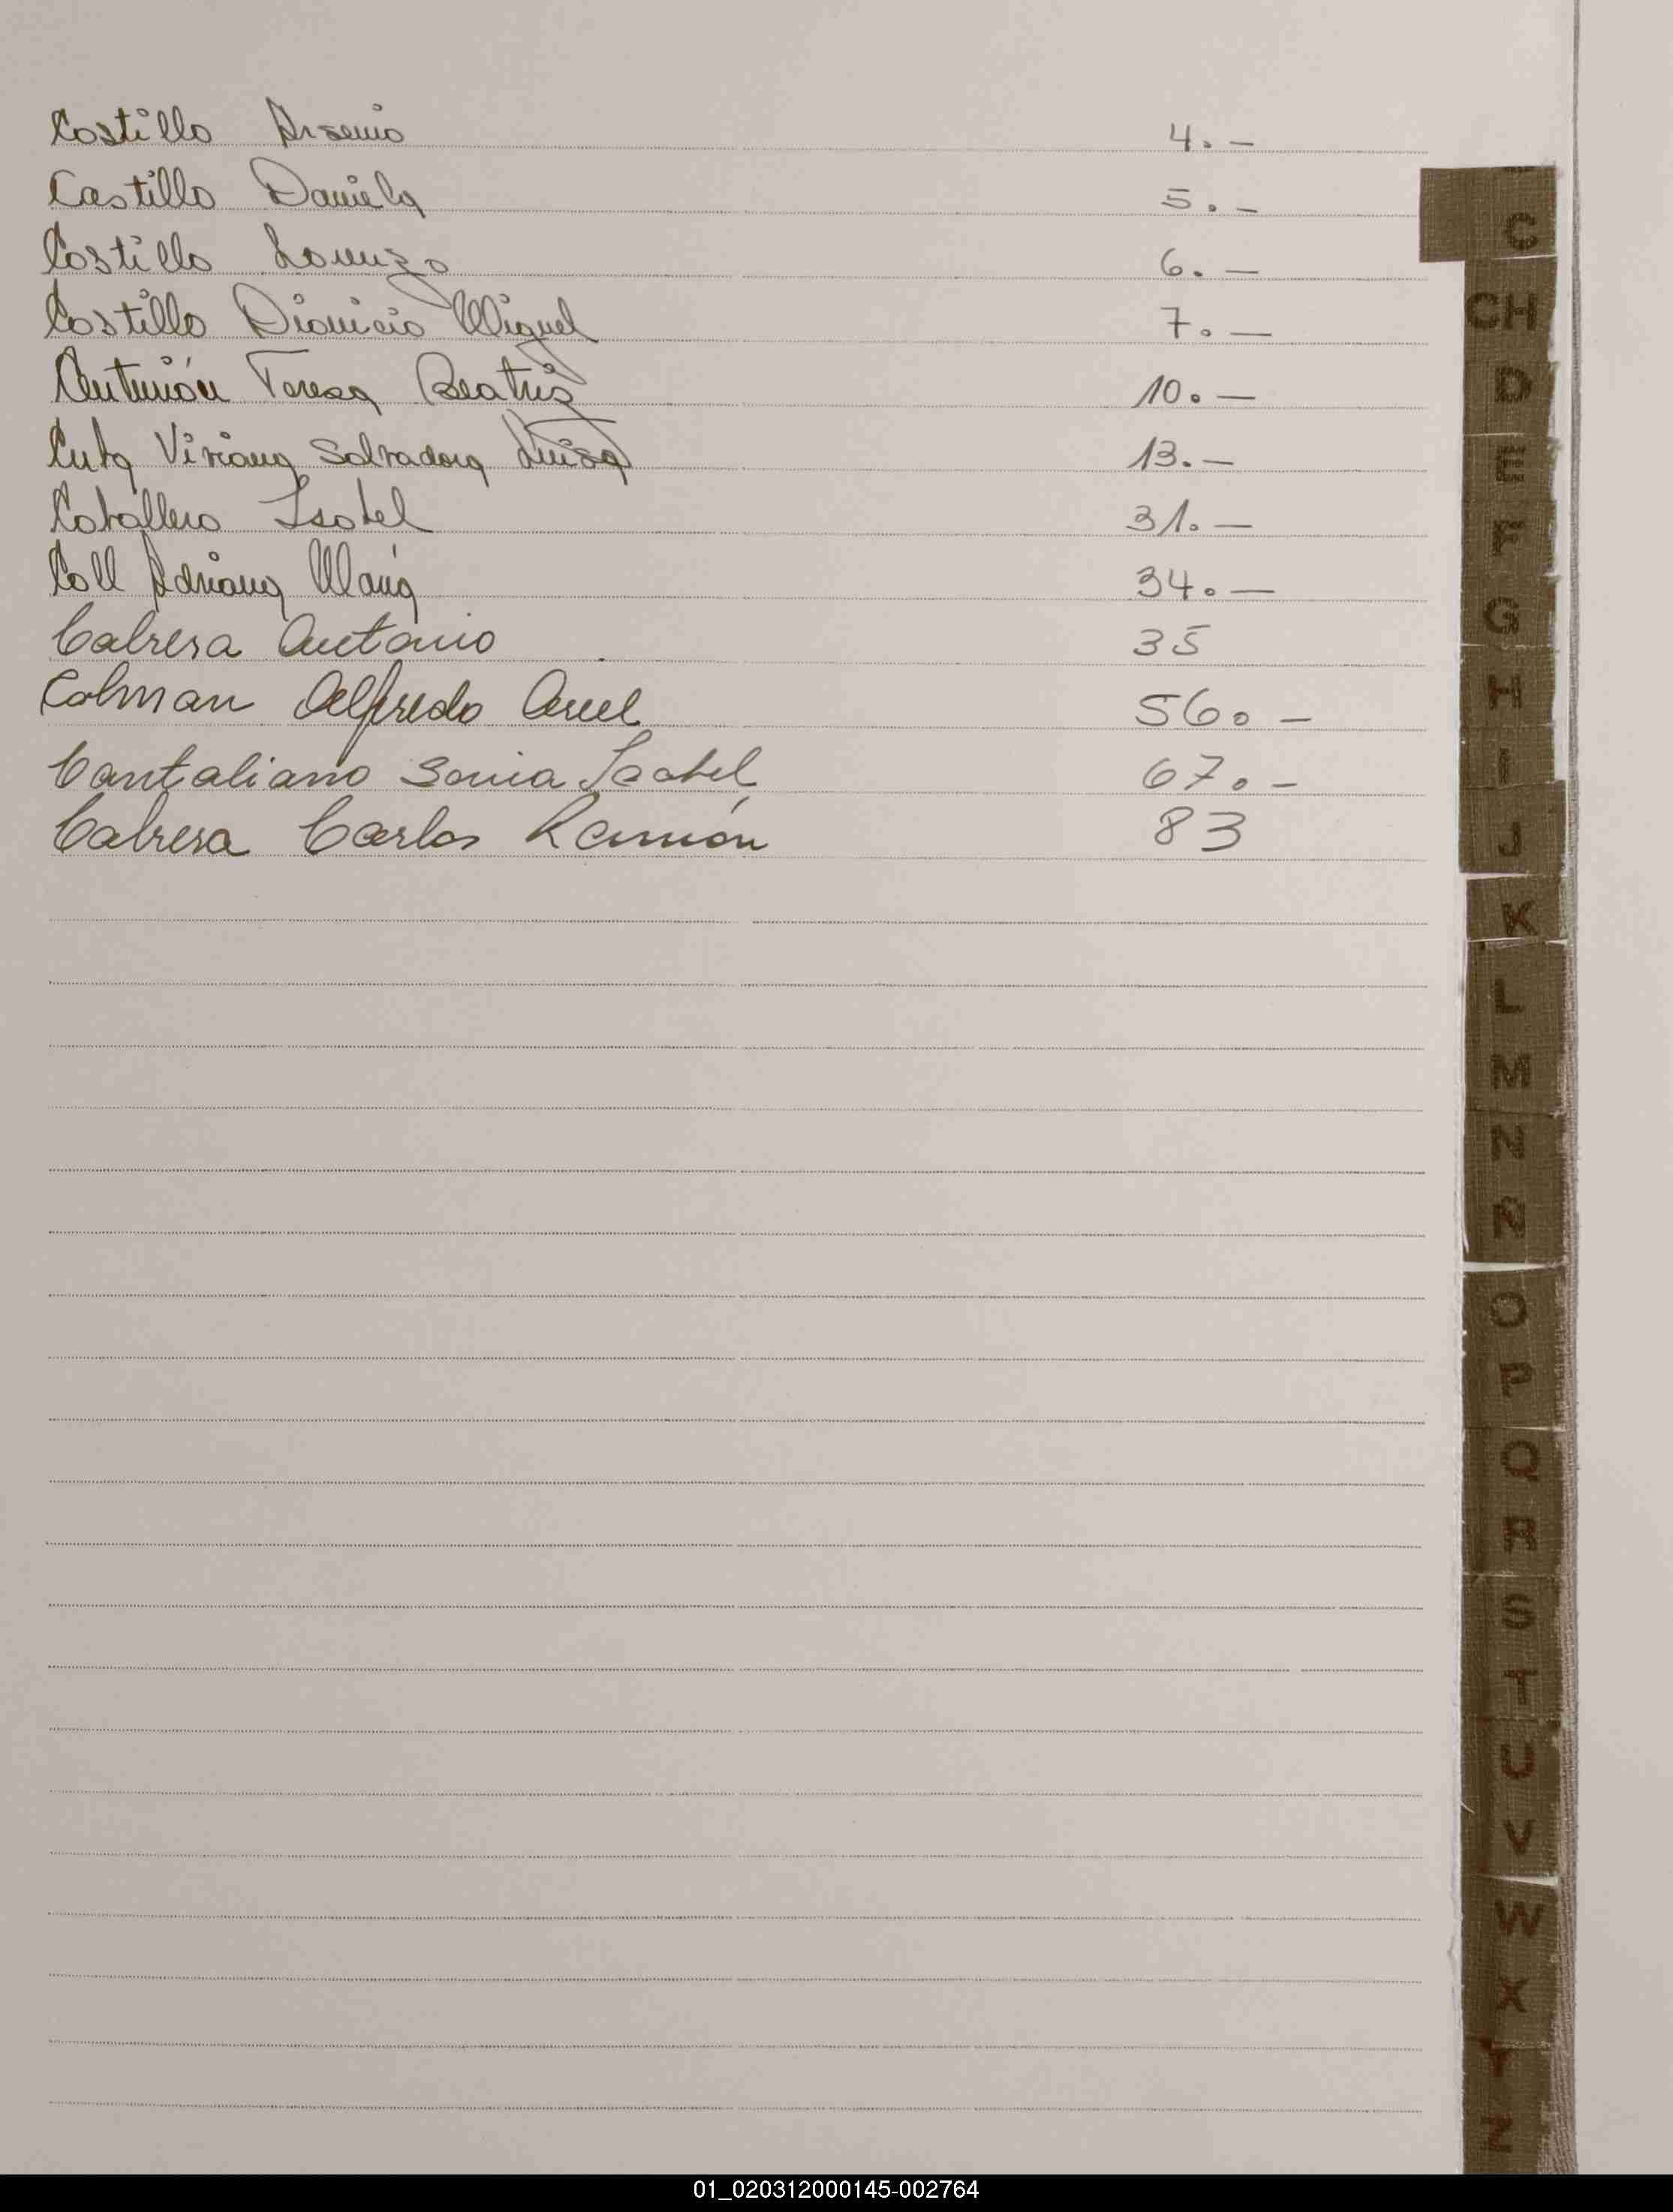 Castillo Arsenio 4. -
Castillo Daniela 5. -
Castillo Lorenzo 6. -
Castillo Dionicio Miguel 7. -
Teresa Beatriz 10. -
Viviana Salvadora Luisa 13. -
Caballero Isabel 31. -
Coll Adriana María 34. -
Cabrera Antonio 35
Colman Alfredo 56. -
Cantaliano Sonia Isabel 67. -
Cabrera Carlos Ramón 83
C
CH
D
E
F
G
H
I
J
K
L
M
N
Ñ
O
P
Q
R
S
T
U
V
W
X
Y
Z
01_020312000145-002764